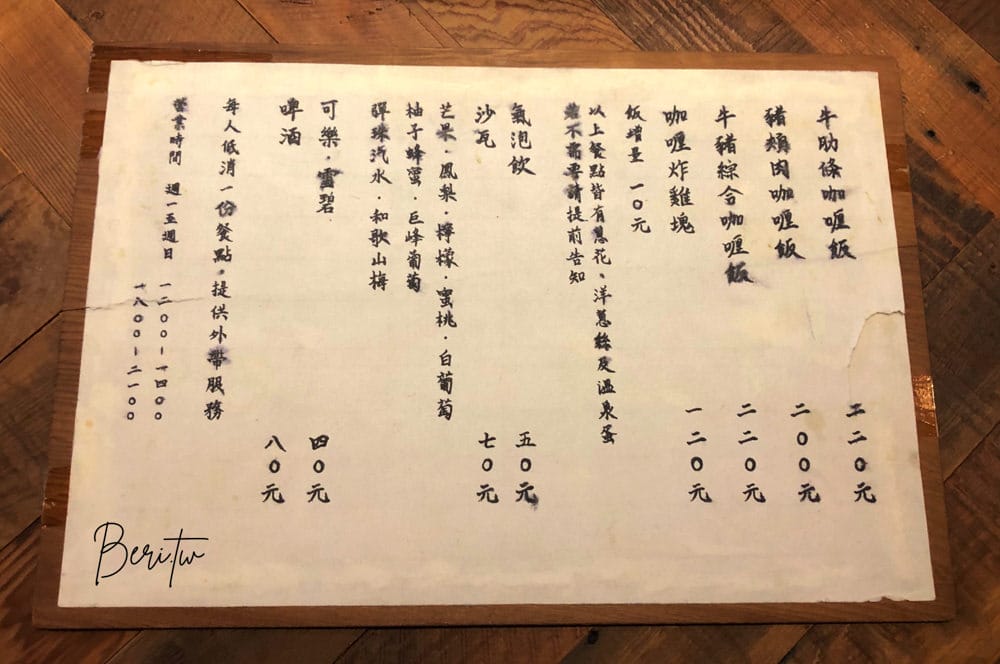 牛肋條咖喱飯 二二０元
豬頰肉咖喱飯 二００元
牛豬綜合咖喱飯 二二０元
咖喱炸雞塊 一二０元
飯增量 一０元
以上餐點皆有蔥花、洋蔥絲及溫泉蛋
若不需要請提前告知
氣泡飲 五０元
沙瓦 七０元
芒果．鳳梨．檸檬．蜜桃．白葡萄
柚子蜂蜜．巨峰葡萄
彈珠汽水．和歌山梅
可樂．雪碧 四０元
啤酒 八０元
每人低消一份餐點。提供外帶服務
營業時間 週一至週日 一二００－一四００
一八００－二一００
Beri.tw